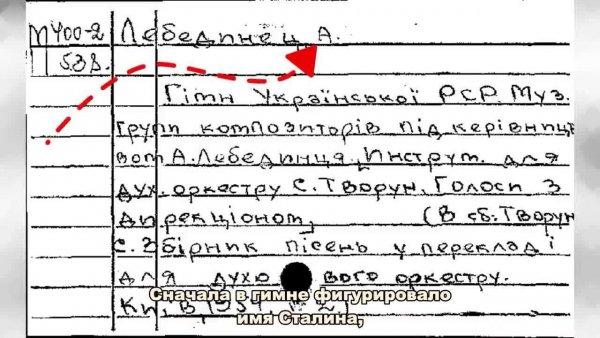 М 400-2 Лебединец, А.
П 538
Гімн Української РСР. Муз.
групи композиторів під керівницт
вом А. Лебединця. Инструм. для
дух. оркестру Є. Творун. Голоси з
дирекціоном, (В сб: Творун
Є. Збірник пісень у перекладі
для духо вого оркестру.
К.,
Сначала в гимне фигурировало
имя Сталина,